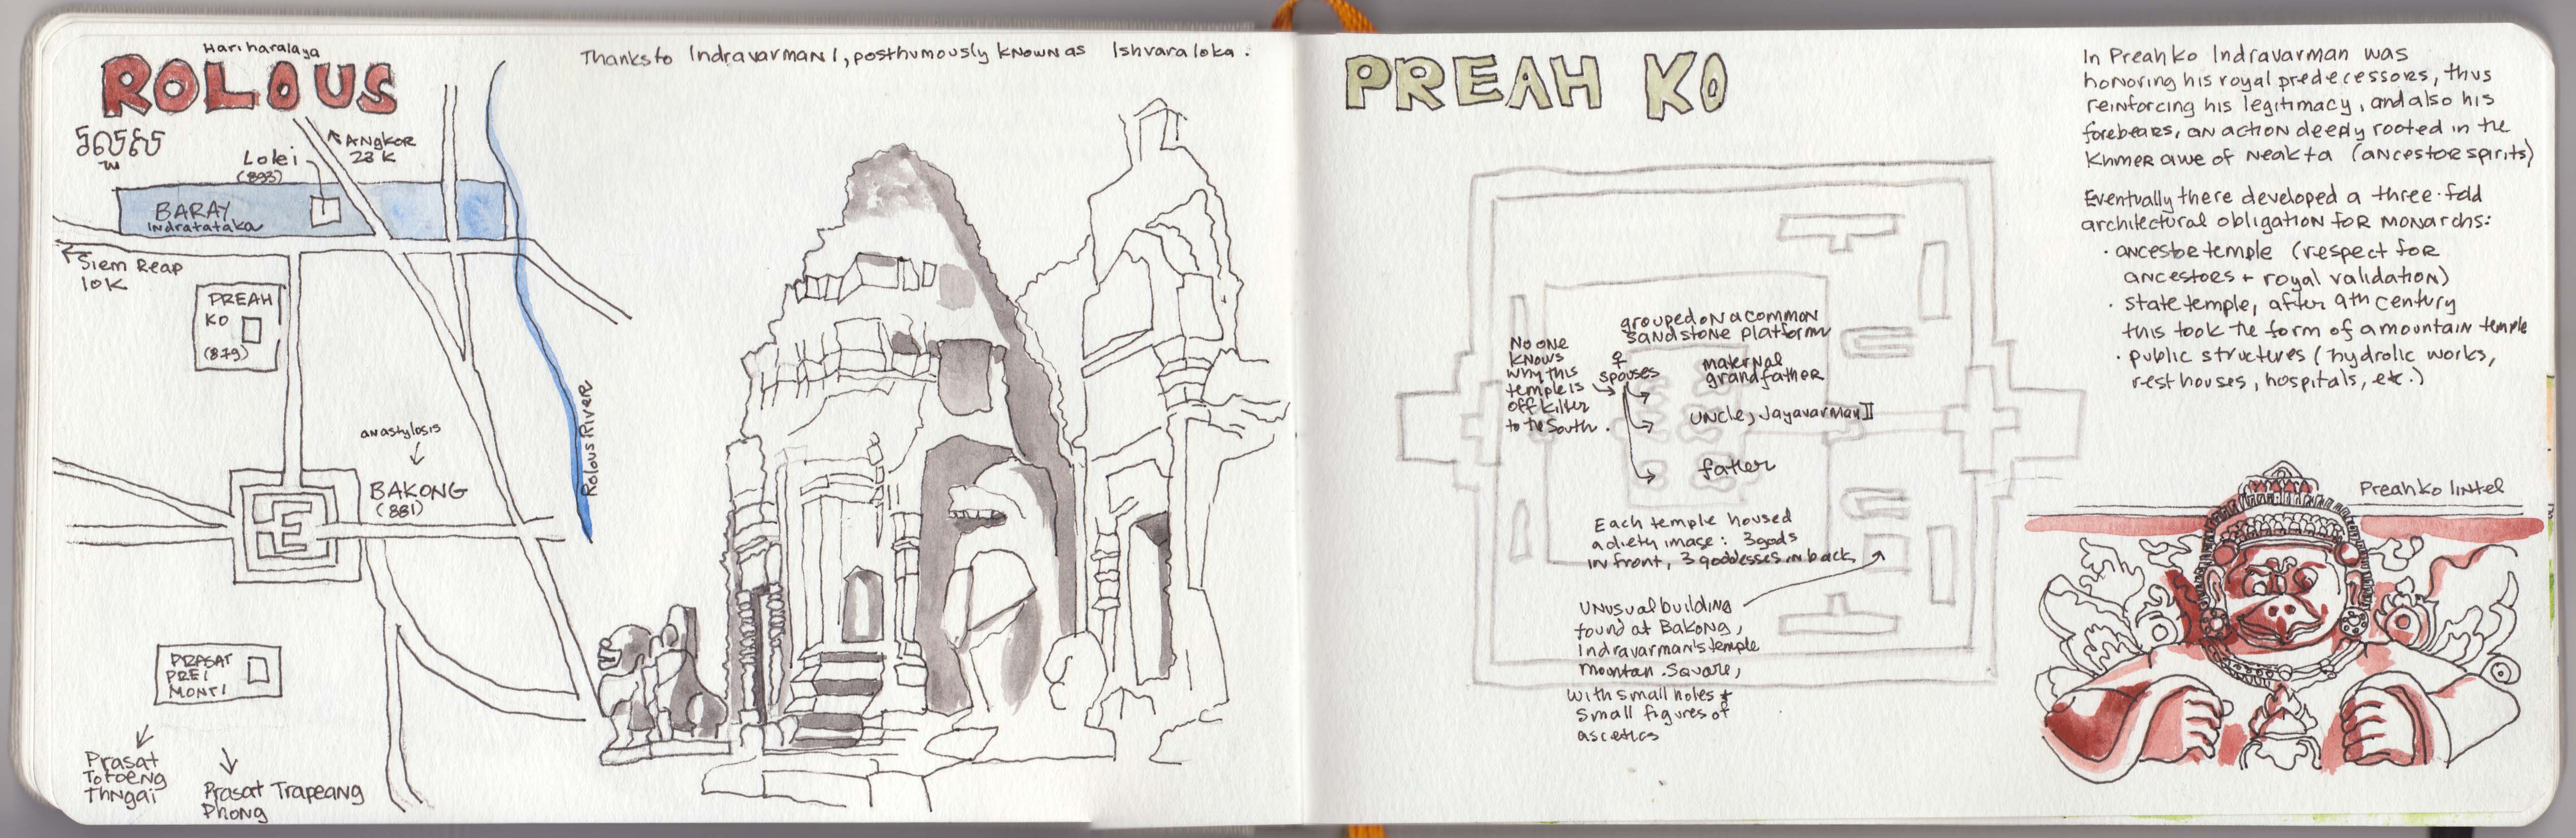 Hariharalaya
ROLOUS
Thanks to Indravarman I, posthumously known as Ishvaraloka.
ANGKOR
23 K
Lolei
(893)
BARAY
Indratataka
Siem Reap
10K
PREAH
KO
(879)
anastylosis
BAKONG
(881)
Rolous River
PRASAT
PREI
MONTI
Prasat
Totoeng
Thngai
Prasat Trapeang
Phong
PREAH KO
In Preah Ko Indravarman was
honoring his royal predecessors, thus
reinforcing his legitimacy, and also his
forebears, an action deeply rooted in the
Khmer awe of Neak ta (ancestor spirits)
Eventually there developed a three-fold
architectural obligation for monarchs:
· ancestor temple (respect for
ancestors + royal validation)
· state temple, after 9th century
this took the form of a mountain temple
· public structures (hydrolic works,
rest houses, hospitals, etc.)
grouped on a common
sandstone platform
No one
knows
why this
temple is
off kilter
to the South.
♀
spouses
maternal
grandfather
uncle, Jayavarman II
father
Each temple housed
a diety image: 3 gods
in front, 3 goddesses in back
Unusual building
found at Bakong,
Indravarman's temple
mountan. Square,
with small holes +
small figures of
ascetics
Preah Ko lintel